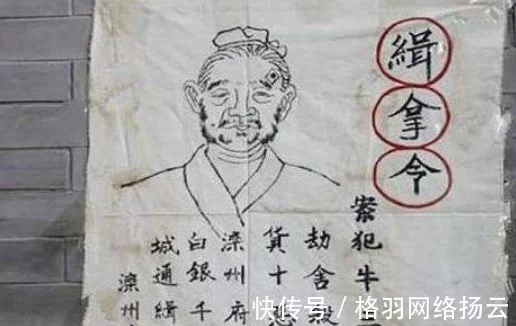 緝拿令
案犯牛
劫舍殺
貨十惡
滦州府
白銀千
城通緝
滦州
快传号 / 格羽网络扬云